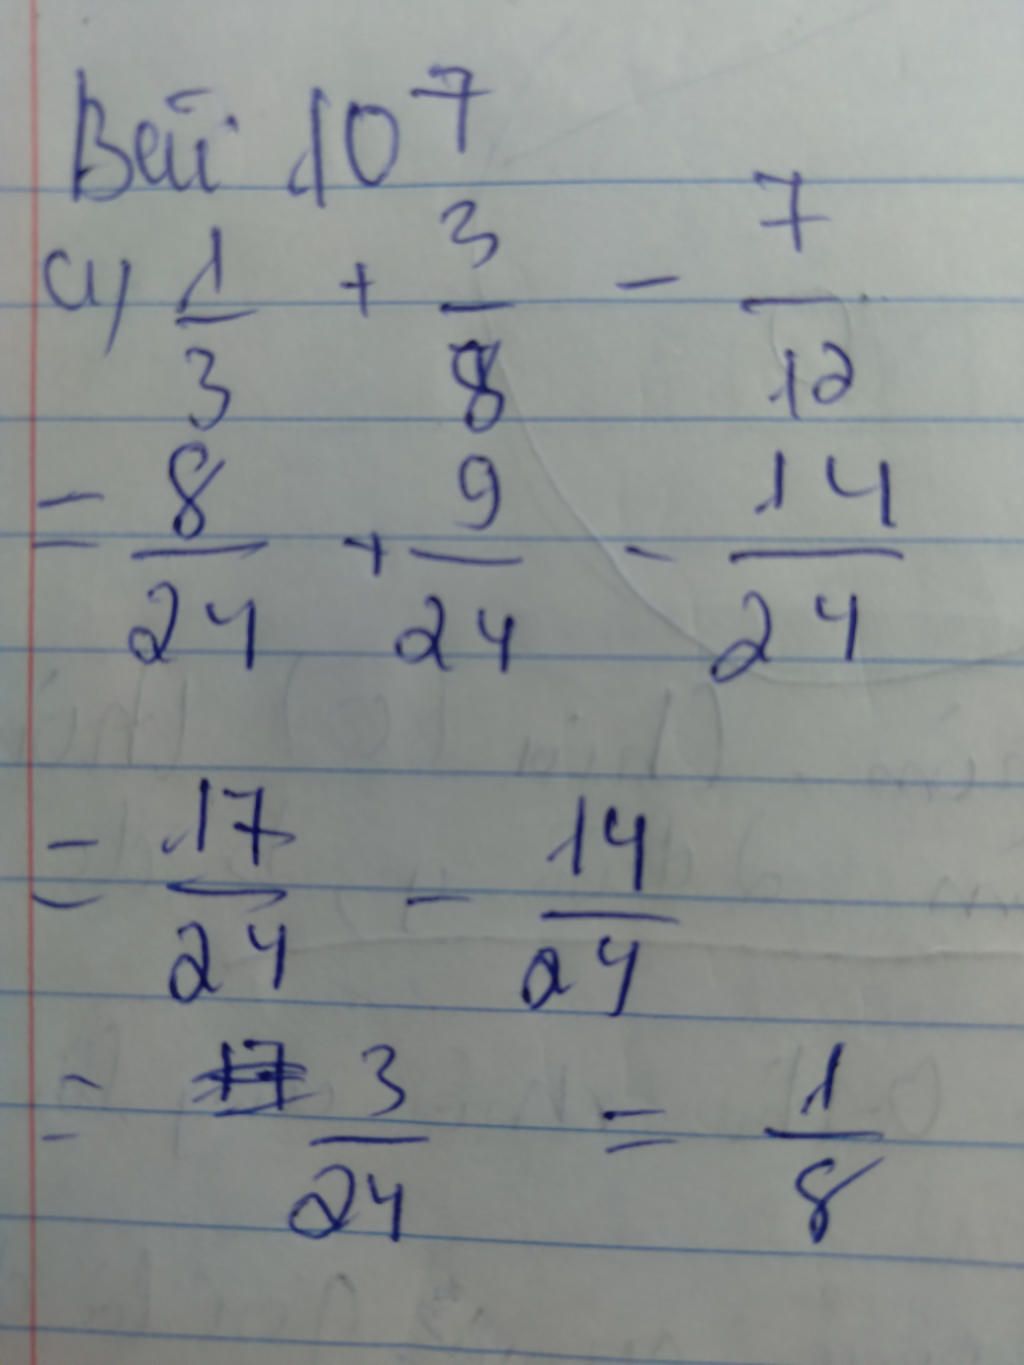 Bài 107
a) 1/3 + 3/8 - 7/12
= 8/24 + 9/24 - 14/24
= 17/24 - 14/24
= 3/24 = 1/8